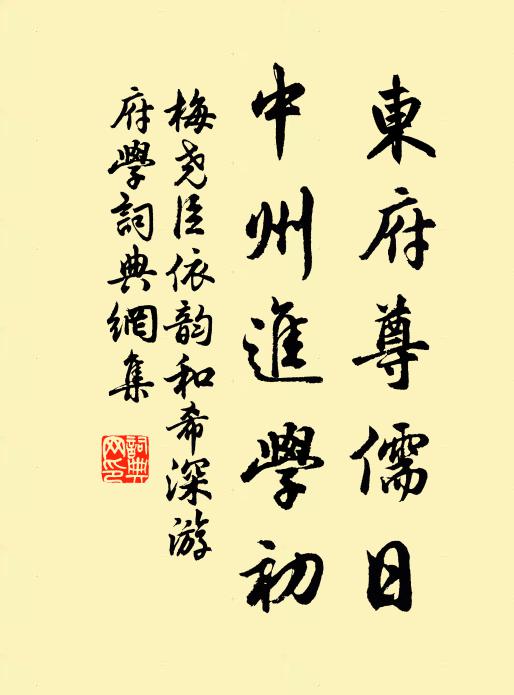 東府尊儒日
中州進學初
梅尧臣依韵和希深游
府學詞典網集
詞典
网印